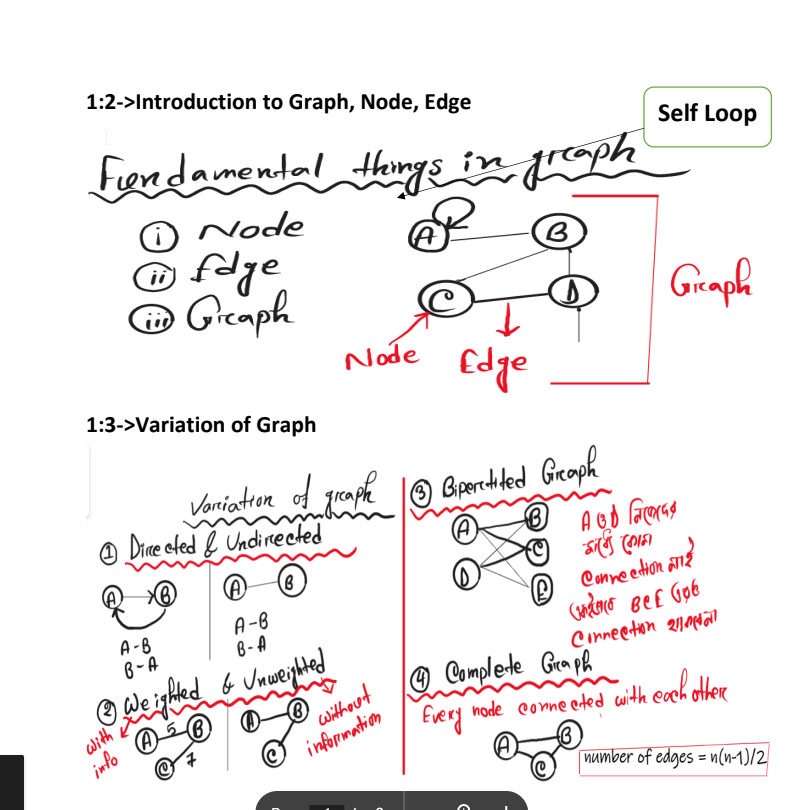 1:2->Introduction to Graph, Node, Edge
Self Loop
Fundamental things in graph
i Node
ii Edge
iii Graph
A B
C D
Graph
Node Edge
1:3->Variation of Graph
Variation of graph
1 Directed & Undirected
A B
A B
A-B
B-A
A-B
B-A
2 Weighted & Unweighted
with info
A 5 B
C 7
A B
C
without information
3 Bipertited Graph
A B
C
D E
A ও D নিজেদের
মধ্যে কোন
Connection নাই
BCE
Connection থাকবেনা
4 Complete Graph
Every node connected with each other
A B
C
number of edges = n(n-1)/2